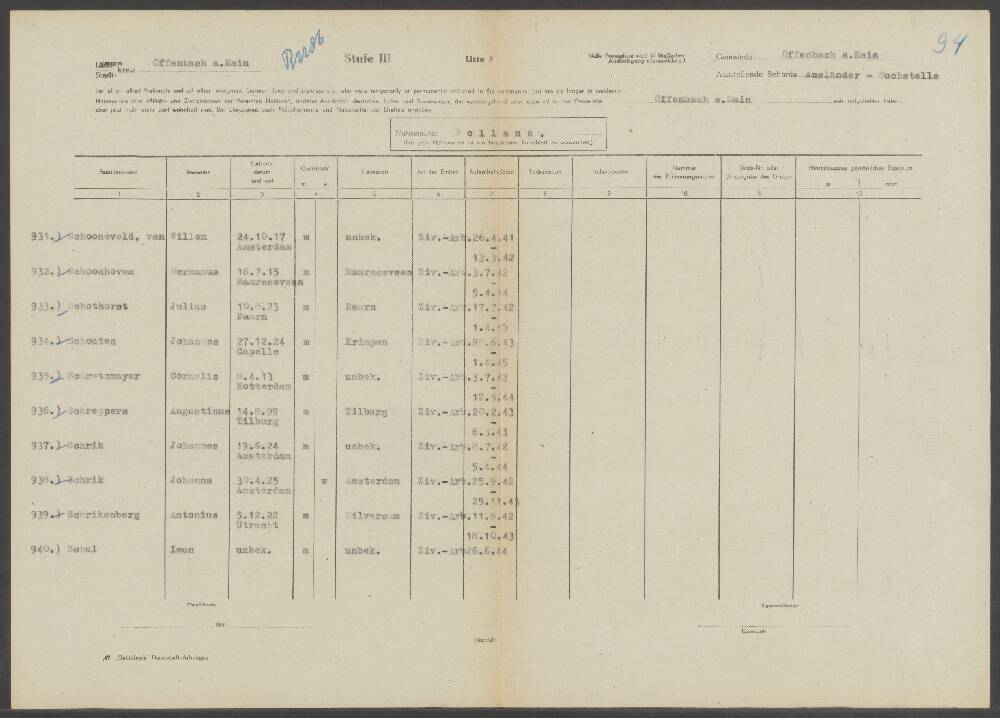 94
Stufe III
Liste F
Stadt- kreis Offenbach a.Main
Gemeinde Offenbach a.Main
Ausstellende Behörde Ausländer - Suchstelle
List of all allied Nationals and all other foreigners, German Jews and stateless etc. who were temporarily or permanently stationed in the community, but are no longer in residence
Offenbach a.Main
Nationalität: Holland.
Familienname Vorname Geburts- datum und -ort Geschlecht m. w. Heimatort Art der Einheit Aufenthaltsdaten Todesdatum Todesursache Nummer der Erkennungsmarke Grab-Nr. oder Hinterlassenes persönliches Eigentum
1 2 3 4 5 6 7 8 9 10 11 12
931.) Schooneveld, van Willem 24.10.17 m unbek. Ziv.-Arb. 26.4.41
Amsterdam –
13.3.42
932.) Schoonhoven Hermanus 16.7.15 m Maareseveen Ziv.-Arb. 3.7.42
Maareseveen –
5.4.44
933.) Schothorst Julius 10.8.23 m Baarn Ziv.-Arb. 17.7.42
Baarn –
1.4.45
934.) Schouten Johannes 27.12.24 m Krimpen Ziv.-Arb. 28.6.43
Capelle –
1.4.45
935.) Schretzmayer Cornelis 8.4.13 m unbek. Ziv.-Arb. 3.7.43
Rotterdam –
12.5.44
936.) Schreppers Augustinus 14.8.99 m Tilburg Ziv.-Arb. 20.2.43
Tilburg –
6.3.43
937.) Schrik Johannes 19.6.24 m unbek. Ziv.-Arb. 8.7.42
Amsterdam –
5.4.44
938.) Schrik Johanna 30.4.25 w Amsterdam Ziv.-Arb. 25.9.42
Amsterdam –
25.11.43
939.) Schrikenberg Antonius 5.12.22 m Hilversum Ziv.-Arb. 11.8.42
Utrecht –
18.10.43
940.) Schul Iwan unbek. m unbek. Ziv.-Arb 26.6.44
, den